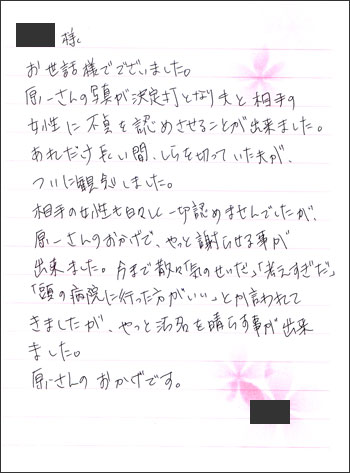 様
お世話様でございました。
原一さんの写真が決定打となり夫と相手の
女性に不貞を認めさせることが出来ました。
あれだけ長い間、しらを切っていた夫が、
ついに観念しました。
相手の女性も白々しく一切認めませんでしたが、
原一さんのおかげで、やっと謝らせる事が
出来ました。今まで散々「気のせいだ」「考えすぎだ」
「頭の病院に行った方がいい」とか言われて
きましたが、やっと汚名を晴らす事が出来
ました。
原一さんのおかげです。